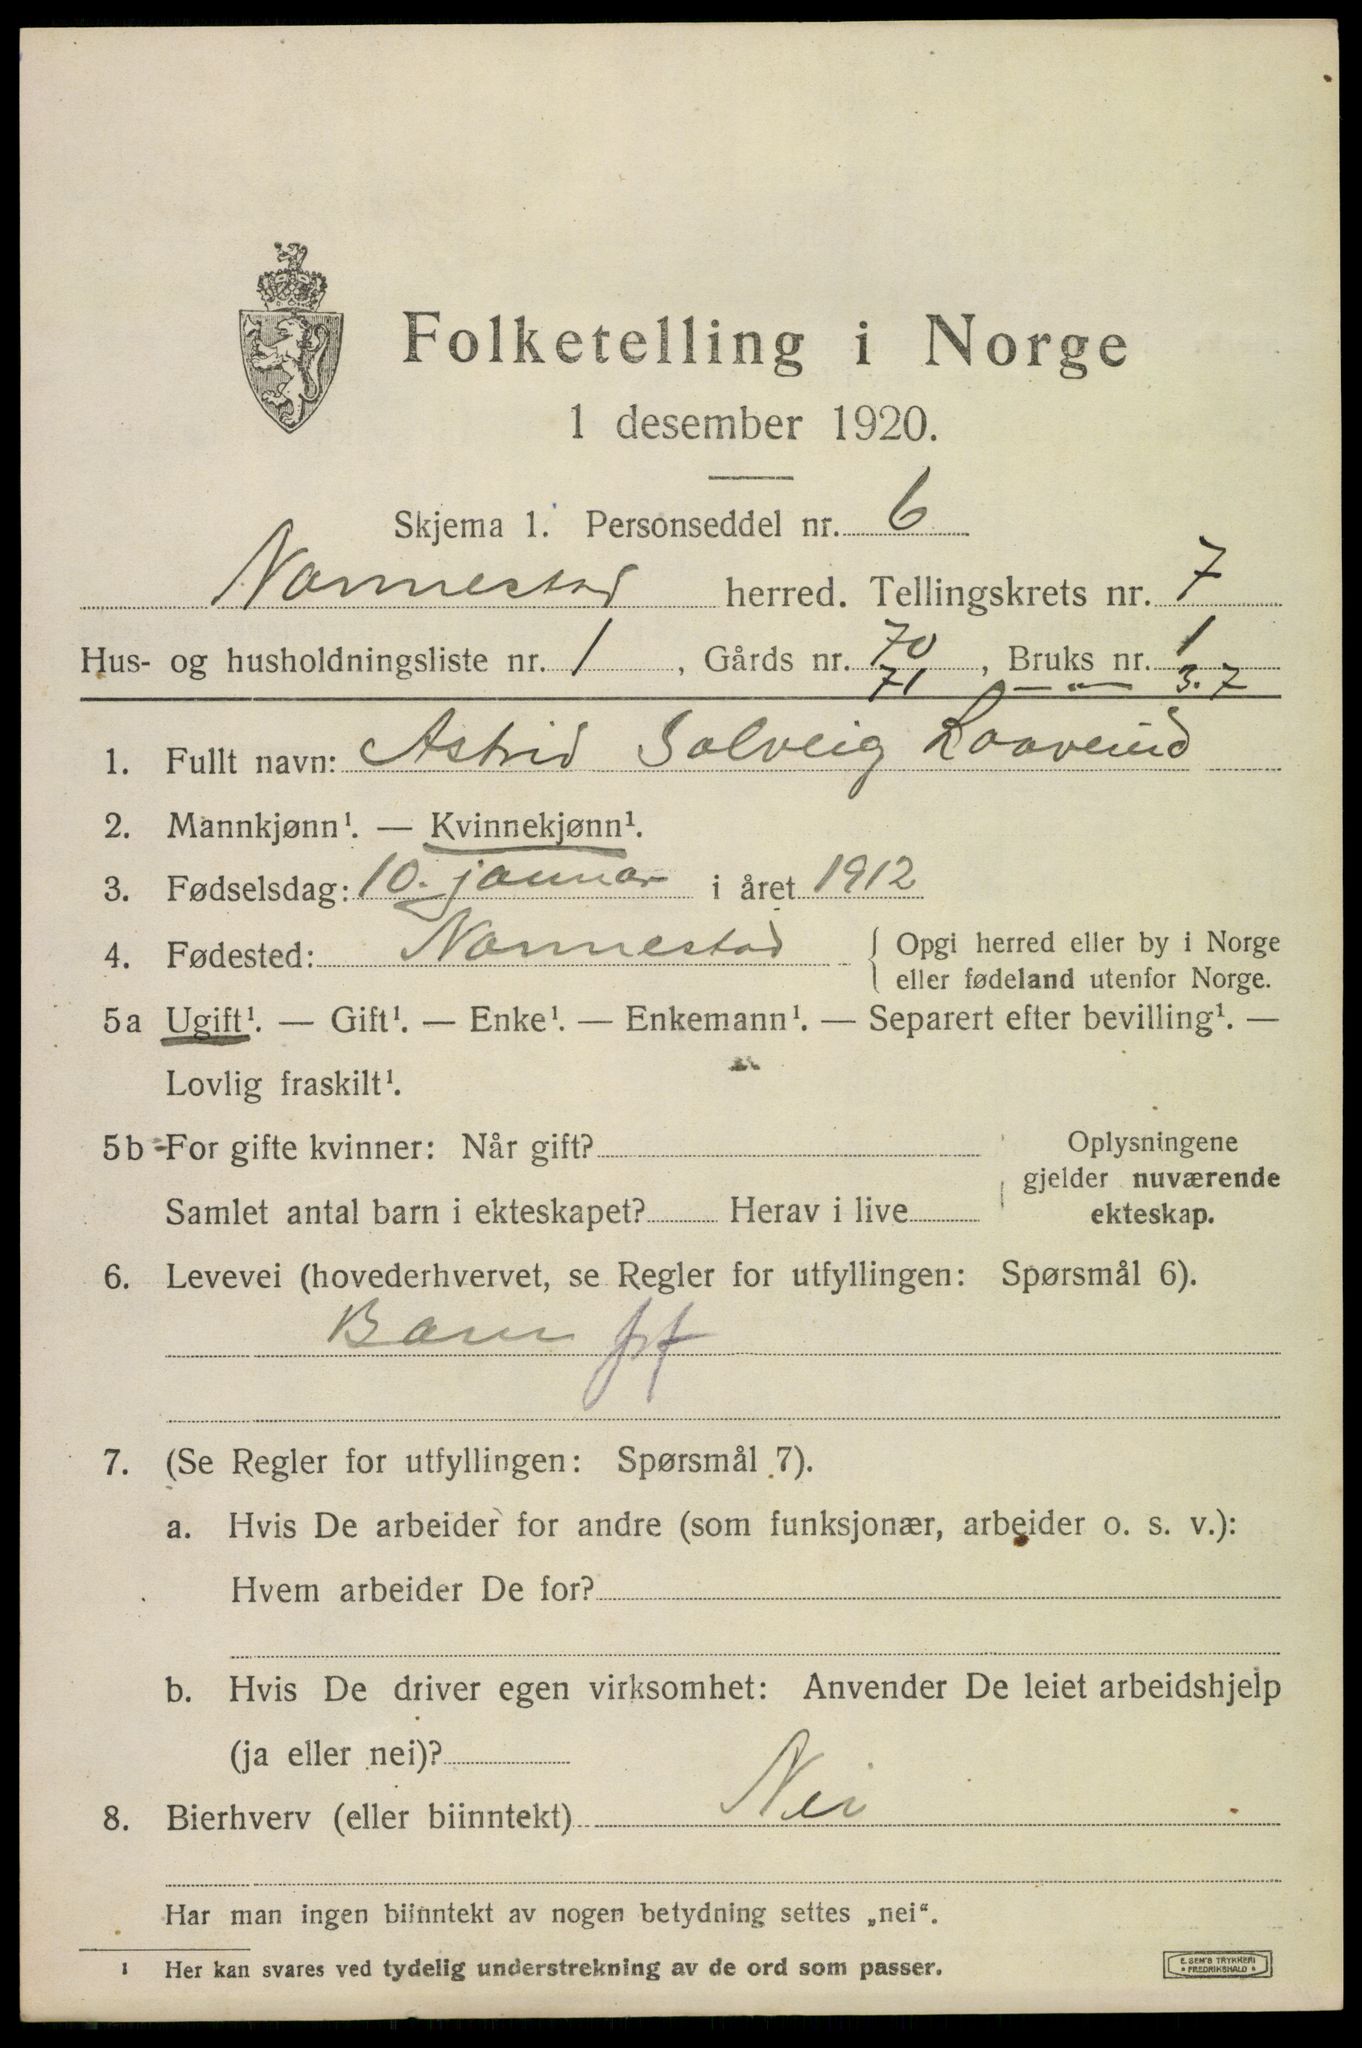 Folketelling i Norge
1 desember 1920.
Skjema 1. Personseddel nr. 6
Nannestad herred. Tellingskrets nr. 7
Hus- og husholdningsliste nr. 1, Gårds nr. 70, Bruks nr. 1
71 — „ — 3. 7
1. Fullt navn: Astrid Solveig
2. Mannkjønn¹. — Kvinnekjønn¹.
3. Fødselsdag: 10. januar i året 1912
4. Fødested: Nannestad { Opgi herred eller by i Norge
eller fødeland utenfor Norge.
5a Ugift¹. — Gift¹. — Enke¹. — Enkemann¹. — Separert efter bevilling¹. —
Lovlig fraskilt¹.
5b For gifte kvinner: Når gift? Oplysningene
gjelder nuværende
Samlet antal barn i ekteskapet? Herav i live ekteskap.
6. Levevei (hovederhvervet, se Regler for utfyllingen: Spørsmål 6).
Barn
7. (Se Regler for utfyllingen: Spørsmål 7).
a. Hvis De arbeider for andre (som funksjonær, arbeider o. s. v.):
Hvem arbeider De for?
b. Hvis De driver egen virksomhet: Anvender De leiet arbeidshjelp
(ja eller nei)?
8. Bierhverv (eller biinntekt) Nei
Har man ingen biinntekt av nogen betydning settes „nei“.
¹ Her kan svares ved tydelig understrekning av de ord som passer.
E. SEM'S TRYKKERI
* FREDRIKSHALD *